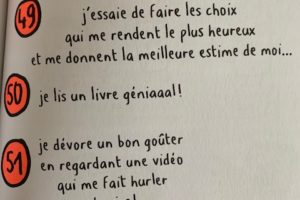 49 j'essaie de faire les choix
qui me rendent le plus heureux
et me donnent la meilleure estime de moi...
50 je lis un livre géniaaal!
51 je dévore un bon goûter
en regardant une vidéo
qui me fait hurler